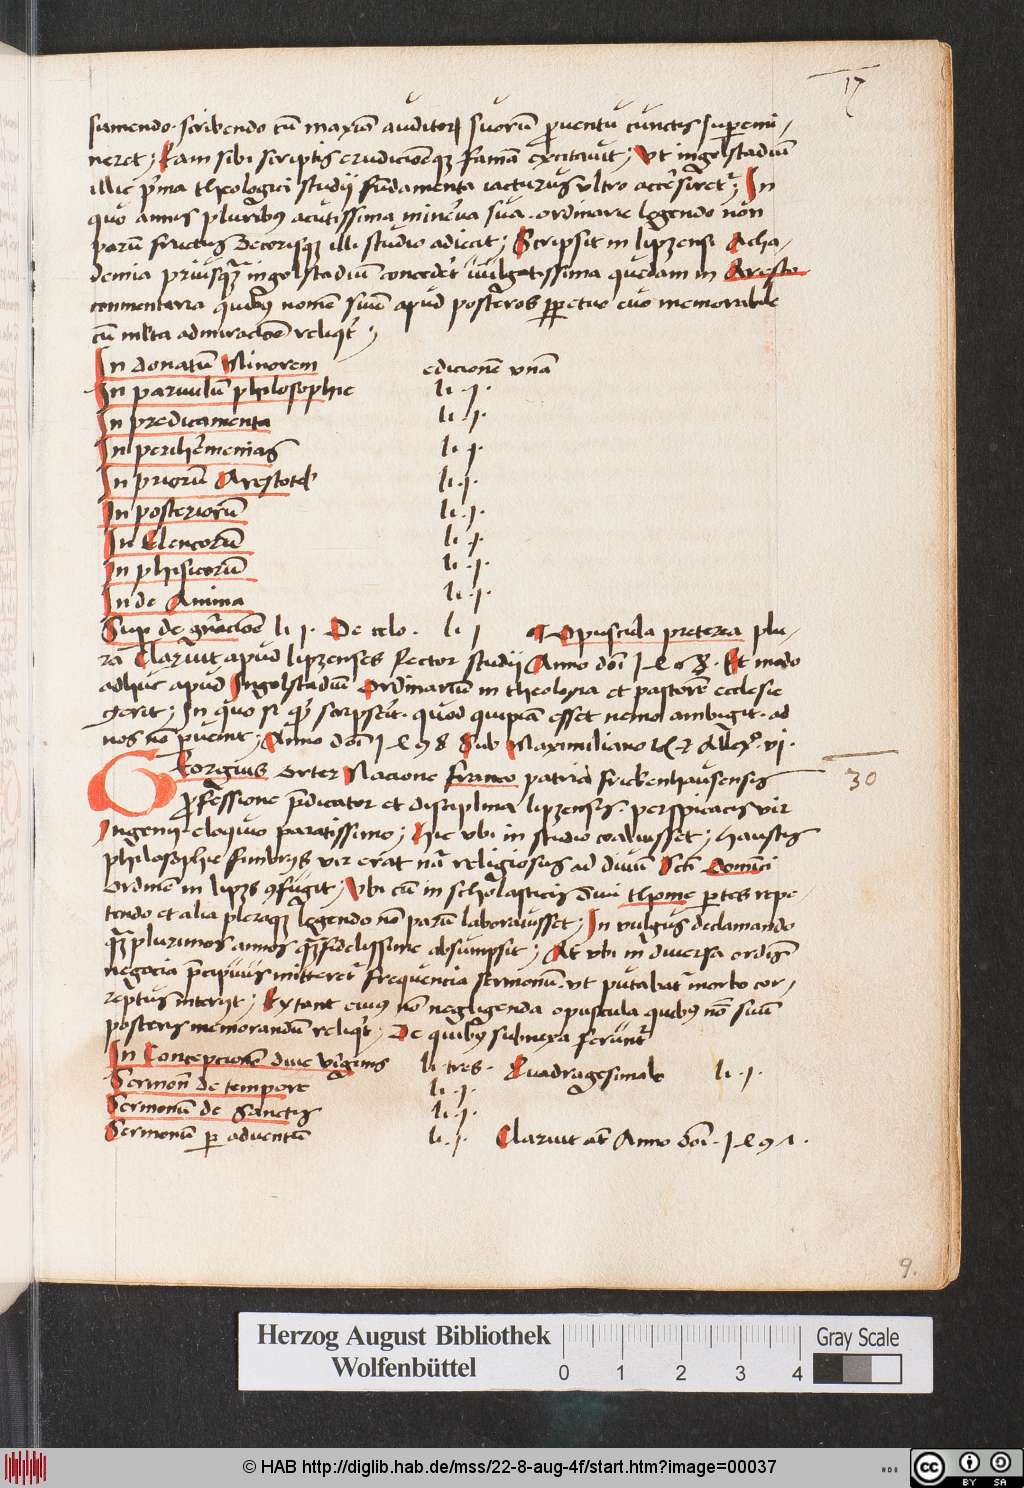 17
sumendo. scribendo cū maxīa auditoꝝ suorū ꝓuentu cunctis suꝑemi-
neret; Eam sibi scriptis erudicionēqꝫ famā excitauit; Vt ingolstadiū
illic p̄ma theologici studij fūdamenta iacturus vltro accersiret᷑; In
quo annis pluribꝰ acutissima minerua sua. ordinarie legendo non
parū fructus decorisqꝫ illi studio adiecit; Scripsit in lipzensi Acha-
demia priusqꝫ ingolstadiū concederet vulgatissima quedam in Aresto
commentaria quibꝰ nomē suū apud posteros ꝑpetuo euo memorabile
cū mlta admiracioē reliqt̄;
In donatū Minorem edicionē vnā
In paruulū philosophie li. j.
In predicamenta li. j.
In perihermenias li. j.
In priorū Arestotel li. j.
In posteriorū li. j.
In Elencorū li. j.
In phisicorū li. j.
In de Anima li. j.
Suꝑ de gn̄acioē li j. De celo. li j Opuscula preterea plu-
ra Claruit apud lipzenses Rector studij Anno dōi 1468. Et modo
adhuc apud Ingolstadiū Ordinariū in theologia et pastorē ecclesie
gerit; In quo si qͥd scripserit. quod quipiā esset nemo ambigit. ad
nos nō ꝓuenit; Anno dōi 1498 Sub Maximiliano Rͤ et Alexͦ. vj.
30
Georgius Orter Nacione Franco patria Frickenhausensis
ꝓfessione p̄dicator et disciplina lipzensis. perspicacis vir
Ingenij. eloquio paratissimo; Hic vbi in studio coaluisset; haustis
philosophie fimbrijs vir erat nā religiosus ad diuū Sctī Dominici
ordinē in lipzs ꝯfugit; Vbi cū in scholasticis diui thome ꝑtes repe-
tendo et alia pleraqꝫ legendo nō parū laborauisset; In vulgus declamando
qꝫ plurimos annos qꝫ fidelissime absumpsit; At vbi in diuersa ordīs
negocia p̄cipuus mitteret᷑ frequencia sermonū. vt putabat᷑ morbo cor-
reptus interijt; Extant eiuꝰ nō negligenda opuscula quibꝰ nōē suū
posteris memorandū reliqͥt; De quibꝰ subnexa ferūt᷑
In Concepcionē diue virginis li. tres. Quadragesimale li. j.
Sermonū de tempore li. j.
Sermonū de Sanctis li. j.
Sermonū ꝑ aduentū li. j. Claruit at̄ Anno dōi. 1491.
9.
Herzog August Bibliothek
Wolfenbüttel
0 1 2 3 4
Gray Scale
© HAB http://diglib.hab.de/mss/22-8-aug-4f/start.htm?image=00037
cc BY SA